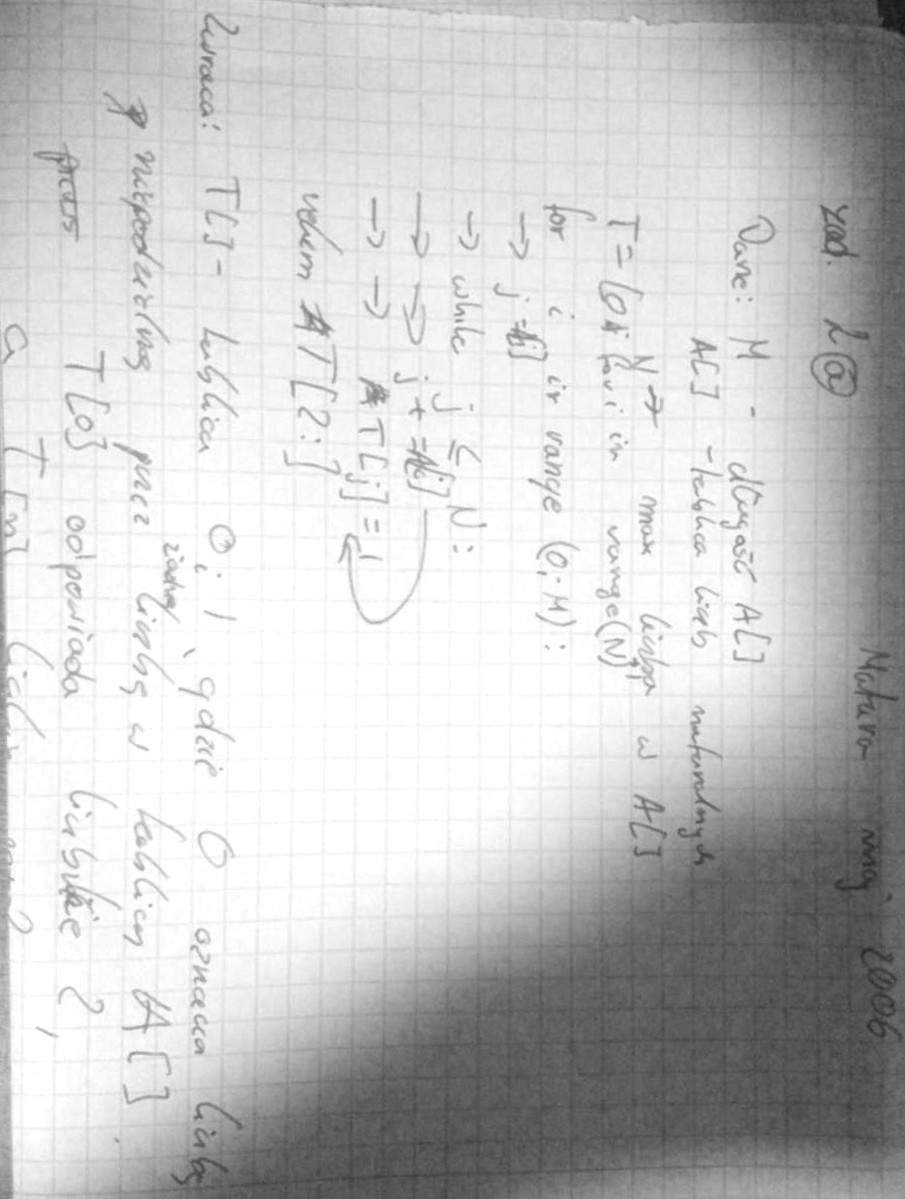 Matura maj 2006
zad. 2 a
Dane: M - długość A[]
A[] - tablica liczb naturalnych
N → max liczba w A[]
T = [0 for i in range(N)]
for i in range (0, M):
→ j = A[i]
→ while j ≤ N:
→ → j += A[i]
→ → T[j] = 1
return T[2:]
Zwraca: T[] - tablica 0 i 1, gdzie 0 oznacza liczbę
niepodzielną przez żadną liczbę w tablicy A[]
T[0] odpowiada liczbie 2,
a T[n] liczbie